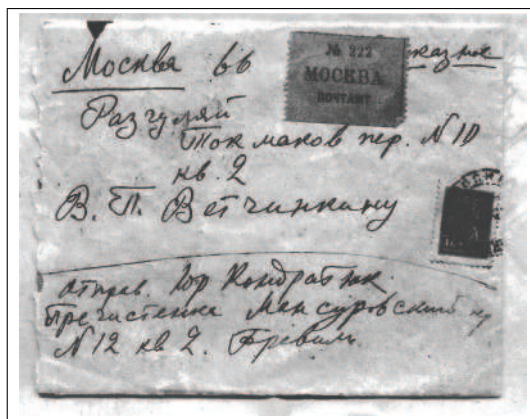 Москва 66
№ 222
МОСКВА
ПОЧТАМТ
Разгуляй
Токмаков пер. N 10
кв. 2
В. П. Ветчинкину
отправ. Юр Кондратюк.
Пречистенка Мансуровский
N 12 кв 2.